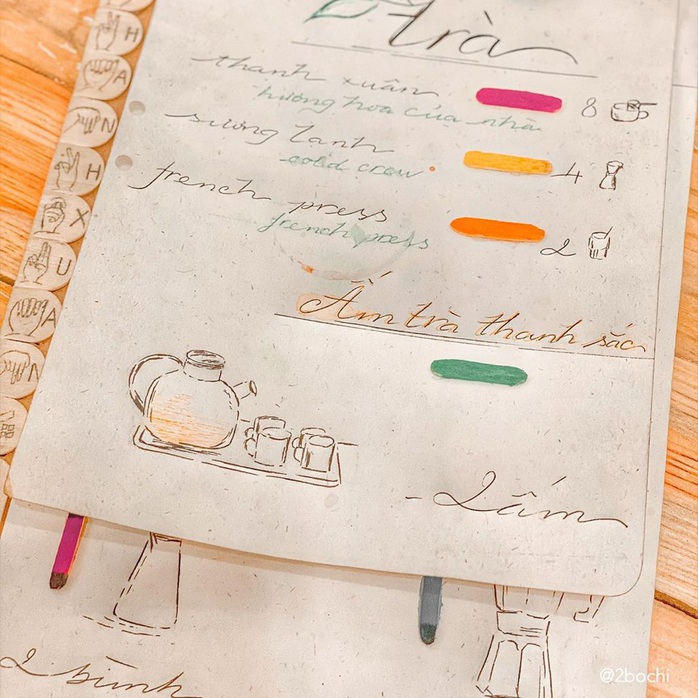 trà
thanh xuân
hương hoa của nhà
8
sương lanh
cold crew
4
french press
french press
2
Ấm trà thanh sắc
- 2 ấm
2 bình
H
A
N
H
X
U
A
N
@2bochi